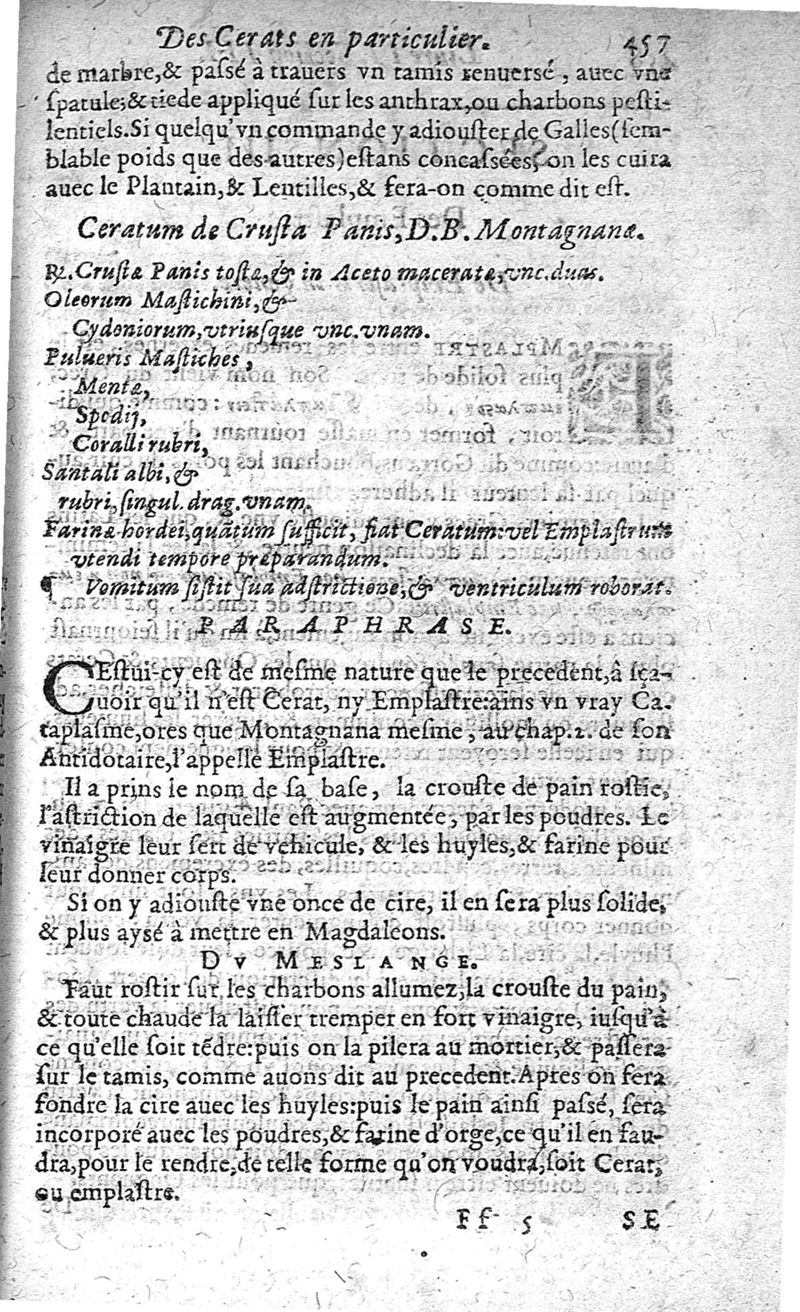 Des Cerats en particulier. 457
de marbre,& paſſé à trauers vn tamis renuersé, auec vne
ſpatule;& tiede appliqué ſur les anthrax,ou charbons peſti-
lentiels.Si quelqu'vn commande y adiouſter de Galles(ſem-
blable poids que des autres)eſtans concaſſées, on les cuira
auec le Plantain,& Lentilles,& fera-on comme dit eſt.
Ceratum de Cruſta Panis,D.B.Montagnanæ.
℞.Cruſtæ Panis toſtæ,& in Aceto maceratæ,vnc.duas.
Oleorum Maſtichini,&
Cydoniorum,vtriuſque vnc.vnam.
Pulueris Maſtiches,
Mentæ,
Spodij,
Coralli rubri,
Santali albi,&
rubri,ſingul.drag.vnam.
Farinæ hordei,quãtum ſufficit, fiat Ceratum:vel Emplaſtrum
vtendi tempore præparandum.
¶ Vomitum ſiſtit ſua adſtrictione,& ventriculum roborat.
PARAPHRASE.
CEſtui-cy eſt de meſme nature que le precedent,à ſça-
uoir qu'il n'eſt Cerat, ny Emplaſtre:ains vn vray Ca-
taplaſme,ores que Montagnana meſme, au chap.2. de ſon
Antidotaire,l'appelle Emplaſtre.
Il a prins le nom de ſa baſe, la crouſte de pain roſtie,
l'aſtriction de laquelle eſt augmentée, par les poudres. Le
vinaigre leur ſert de vehicule, & les huyles,& farine pour
leur donner corps.
Si on y adiouſte vne once de cire, il en ſera plus ſolide,
& plus aysé à mettre en Magdaleons.
DV MESLANGE.
Faut roſtir ſur les charbons allumez,la crouſte du pain,
& toute chaude la laiſſer tremper en fort vinaigre, iuſqu'à
ce qu'elle ſoit tẽdre:puis on la pilera au mortier,& paſſera
ſur le tamis, comme auons dit au precedent.Apres on fera
fondre la cire auec les huyles:puis le pain ainſi paſſé, ſera
incorporé auec les poudres,& farine d'orge,ce qu'il en fau-
dra,pour le rendre,de telle forme qu'on voudra,ſoit Cerat,
ou emplaſtre.
Ff 5 SE